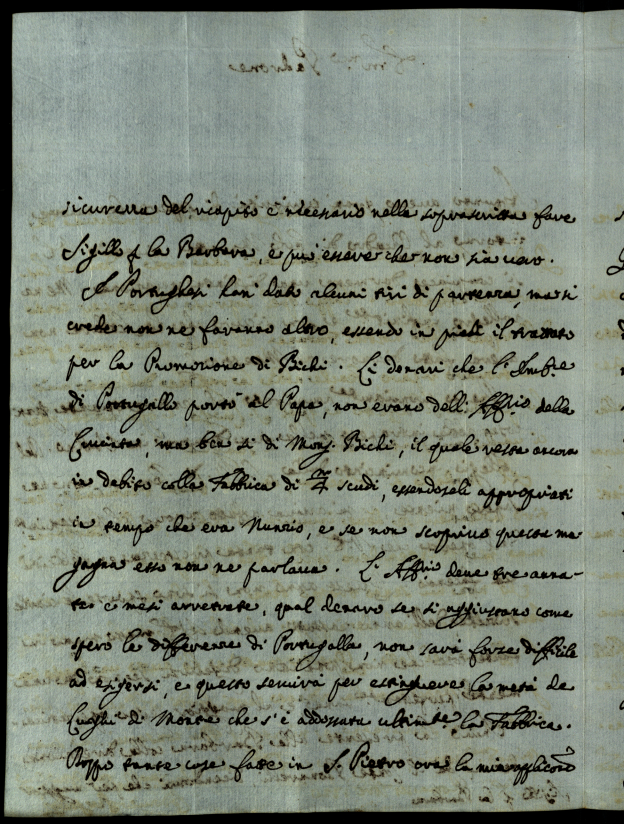 sicurezza del ricapito è necessario nella soprascritta fare
Sigillo p la Barbara, e può essere che non sia vero.
I Portughesi han dato alcuni tiri di partenza, ma si
crede non ne faranno altro, essendo in piedi il trattato
per la Promozione di Bichi. Li denari che l'Imb.e
di Portugallo portò al Papa, non erano dell'Aff.io della
Cruciata, ma ben sì di Mong. Bichi, il quale resta ancora
in debito colla Fabbrica di scudi, essendoseli appropriati
in tempo che era Nunzio, e se non scoprivo questa ma-
gagna esso non ne parlava. L'Aff.io deve tre anna-
te e mesi arretrate, qual denaro se si aggiustano come
spero le differenze di Portugallo, non sarà forse difficile
ad esigersi, e questo servirà per estinguere la metà de
Luoghi di Monte che s'è addossata ultimte. la Fabbrica.
Doppo tante cose fatte in S. Pietro ora la mia applicaone